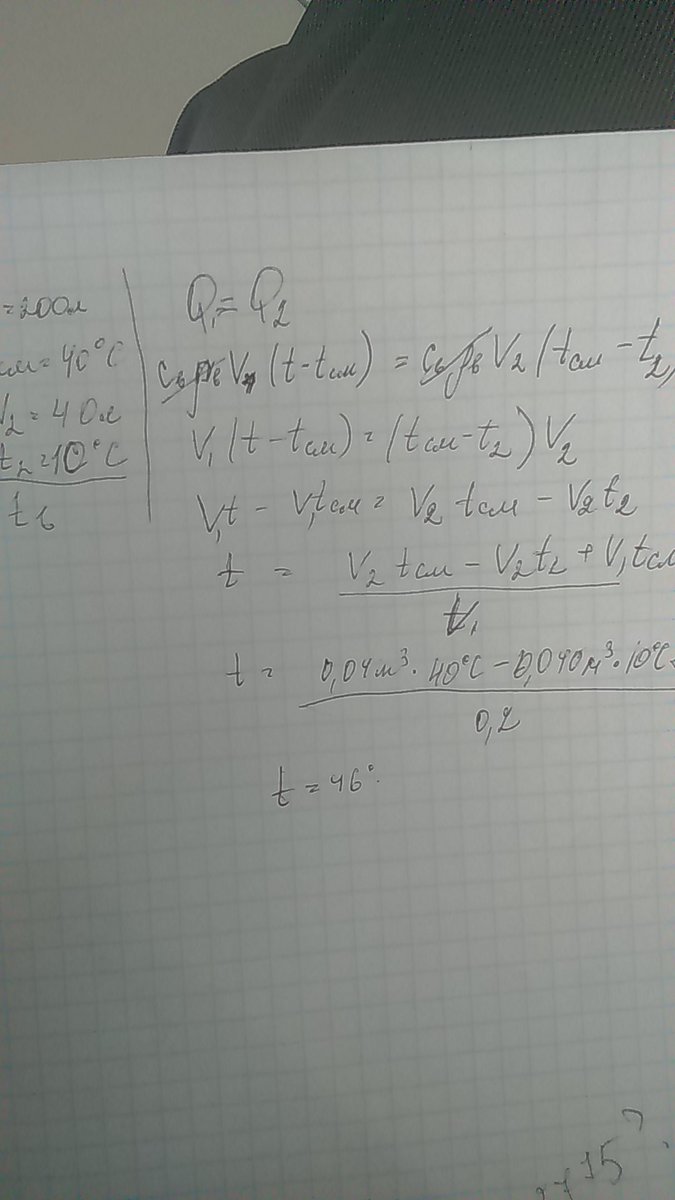 =200л
см=40°C
V₂=40л
t₂=10°C
t₁
Q₁=Q₂
cвρвV₁(t-tсм)=cвρвV₂(tсм-t₂)
V₁(t-tсм)=(tсм-t₂)V₂
V₁t-V₁tсм=V₂tсм-V₂t₂
t = V₂tсм-V₂t₂+V₁tсм
V₁
t = 0,04м³·40°C-0,040м³·10°C
0,2
t=46°
15?